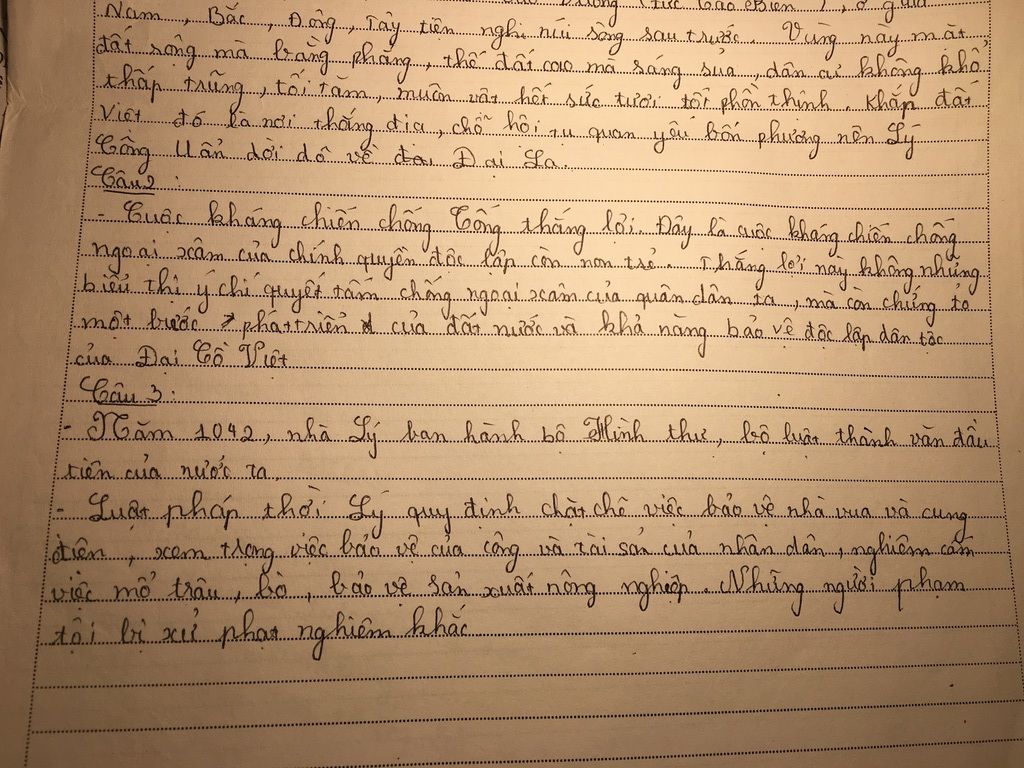 Nam, Bắc, Đông, Tây tiện nghi núi sông sau trước. Vùng này mặt
đất rộng mà bằng phẳng, thế đất cao mà sáng sủa, dân cư không khổ
thấp trũng, tối tăm, muôn vật hết sức tươi tốt phồn thịnh. Khắp đất
Việt đó là nơi thắng địa, chỗ hội tụ quan yếu bốn phương nên Lý
Công Uẩn dời đô về Đại La.
Câu 2:
- Cuộc kháng chiến chống Tống thắng lợi. Đây là cuộc kháng chiến chống
ngoại xâm của chính quyền độc lập còn non trẻ. Thắng lợi này không những
biểu thị ý chí quyết tâm chống ngoại xâm của quân dân ta, mà còn chứng tỏ
một bước phát triển của đất nước và khả năng bảo vệ độc lập dân tộc
của Đại Cồ Việt
Câu 3:
- Năm 1042, nhà Lý ban hành bộ Hình thư, bộ luật thành văn đầu
tiên của nước ta.
- Luật pháp thời Lý quy định chặt chẽ việc bảo vệ nhà vua và cung
điện, xem trọng việc bảo vệ của công và tài sản của nhân dân, nghiêm cấm
việc mổ trâu, bò, bảo vệ sản xuất nông nghiệp. Những người phạm
tội bị xử phạt nghiêm khắc